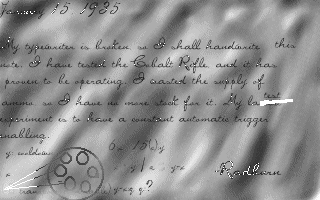 January 15 1935
My typewriter is broken so I shall handwrite this
note. I have tested the Cobalt Rifle and it has
proven to be operating. I wasted the supply of
ammo so I have no more stock for it. My la test
experiment is to have a constant automatic trigger
enabling.
y cooldown
Rodburn